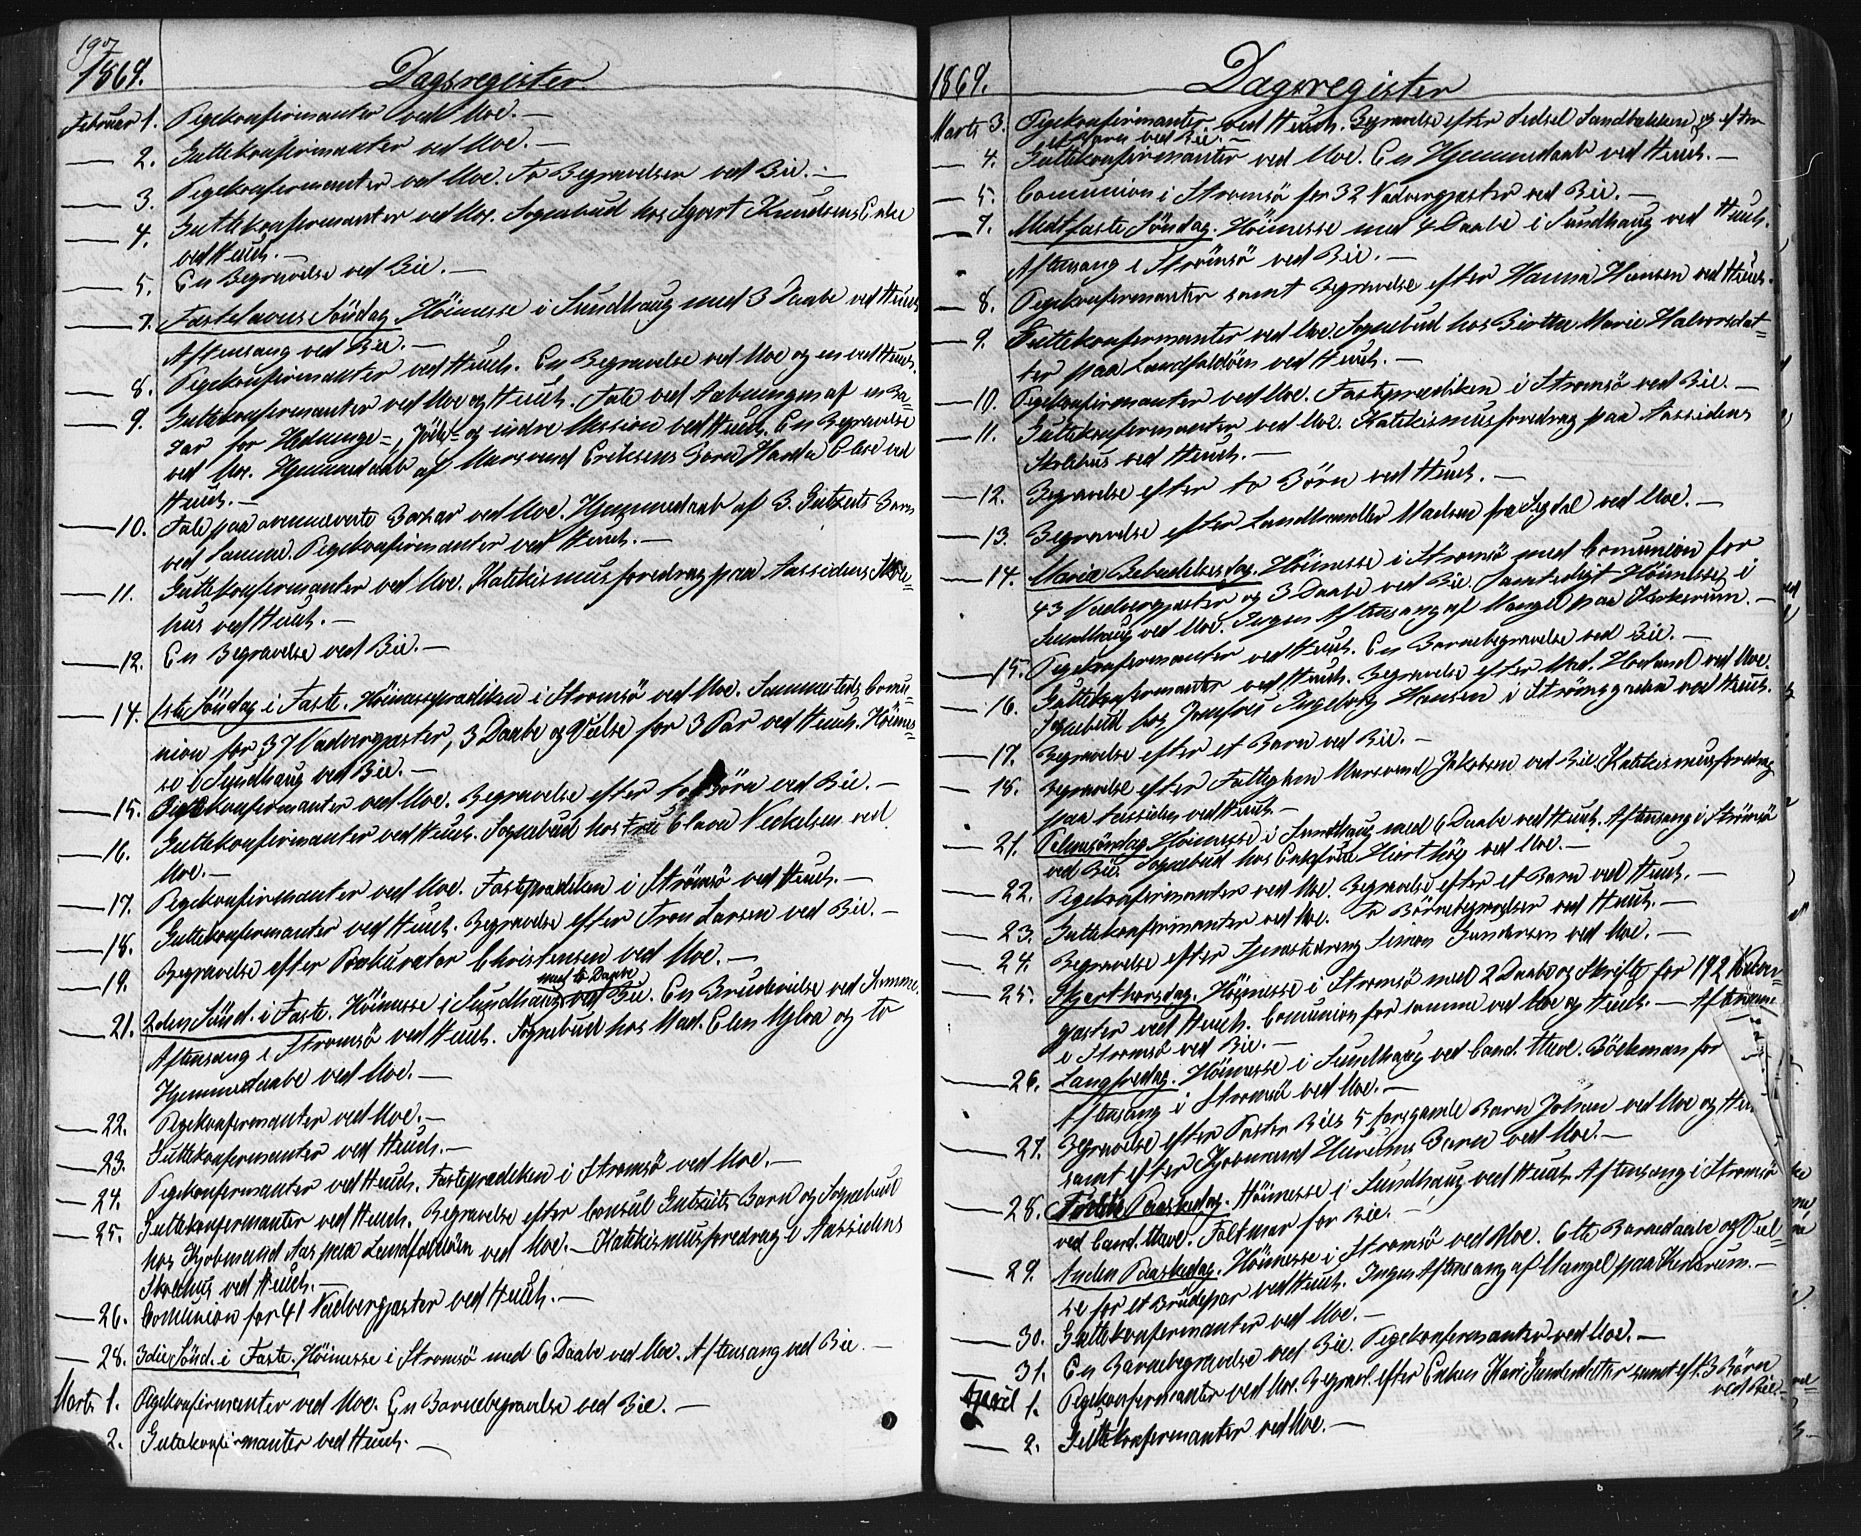 190
1869. Dagsregister.
Februar 1. Pigekonfirmanter ved Moe. —
— 2. Guttekonfirmanter ved Moe. —
— 3. Pigekonfirmanter ved Moe. To Begravelser ved Bie. —
— 4. Guttekonfirmanter ved Moe. Sognebud hos Sgvert Knudsens Enke
ved Heuch. —
— 5. En Begravelse ved Bie. —
— 7. Fastelavns Söndag. Höimesse i Sundhaug med 3 Daabe ved Heuch
Aftensang ved Bie. —
— 8. Pigekonfirmanter ved Heuch. En Begravelse ved Moe og en ved Heuch.
— 9. Guttekonfirmanter ved Moe og Heuch. Tale ved Aabningen af en Ba-
zar for Hedninge-, Jöde- og indre Mission ved Heuch. En Begravelse
ved Moe. Hjemmedaab af Marsvend Eriksens Barn Hanna Elise ved
Heuch. —
— 10. Tale paa ovennævnte Bazar ved Moe. Hjemmedaab af B. Gutzeits Barn
ved Samme. Pigekonfirmanter ved Heuch. —
— 11. Guttekonfirmanter ved Moe. Katekismusforedrag paa Aassidens Skole-
hus ved Heuch. —
— 12. En Begravelse ved Bie. —
— 14. 1ste Söndag i Faste. Höimesseprædiken i Strømsö ved Moe. Sammesteds Comu-
nion for 37 Nadvergjæster, 3 Daabe og Vielse for 3 Par ved Heuch. Höimes-
se i Sundhaug ved Bie. —
— 15. Pigekonfirmanter ved Moe. Begravelse efter to Börn ved Bie. —
— 16. Guttekonfirmanter ved Heuch. Sognebud hos Fru Clara Nickelsen ved
Moe. —
— 17. Pigekonfirmanter ved Moe. Fasteprædiken i Strömsö ved Heuch. —
— 18. Guttekonfirmanter ved Heuch. Begravelse efter Tron Larsen ved Bie. —
— 19. Begravelse efter Prokurator Christensen ved Moe. —
med 6 Daabe
— 21. 2den Sönd. i Faste. Höimesse i Sundhaug ved Bie. En Brudevielse ved Samme.
Aftensang i Strømsö ved Heuch. Sognebud hos Mad. Elen Myhra og to
Hjemmedaabe ved Moe. —
— 22. Pigekonfirmanter ved Moe. —
— 23. Guttekonfirmanter ved Heuch. —
— 24. Pigekonfirmanter ved Heuch. Fasteprædiken i Strømsö ved Moe. —
— 25. Guttekonfirmanter ved Heuch. Begravelse efter Consul Gutzeits Barn og Sognebud
hos Kjobmand Aas paa Landfaldöen ved Moe. — Katekismusforedrag i Aassidens
Skolehus ved Heuch. —
— 26. Comunion for 41 Nadvergjæster ved Heuch. —
— 28. 3die Sönd. i Faste. Höimesse i Strømsö med 6 Daabe ved Moe. Aftensang ved Bie. —
Marts 1. Pigekonfirmanter ved Moe. En Barnebegravelse ved Bie. —
2. Guttekonfirmanter ved Heuch. —
1869. Dagsregister
Marts 3. Pigekonfirmanter ved Heuch. Begravelse efter Sidsel Sandbakken og efter
et Barn ved Bie. —
— 4. Guttekonfirmanter ved Moe. En Hjemmedaab ved Heuch. —
— 5. Communion i Strømsö for 32 Nadvergjæster ved Bie. —
— 7. Midtfaste Söndag. Höimesse med 4 Daabe i Sundhaug ved Heuch.
Aftensang i Strömsö ved Bie. —
— 8. Pigekonfirmanter samt Begravelse efter Hanna Hansen ved Heuch.
— 9. Guttekonfirmanter ved Moe. Sognebud hos Birthe Marie Halvorsdat-
ter paa Landfaldöen ved Heuch. —
— 10. Pigekonfirmanter ved Moe. Fasteprædiken i Strømsö ved Bie. —
— 11. Guttekonfirmanter ved Moe. Katekismusforedrag paa Aassidens
Skolehus ved Heuch. —
— 12. Begravelse efter to Börn ved Heuch. —
— 13. Begravelse efter Landhandler Madsen fra Sigdal ved Moe. —
— 14. Mariæ Bebudelsesdag. Höimesse i Strømsö med Comunion for
43 Nadvergjæster og 3 Daabe ved Bie. Samtidigt Höimesse i
Sundhaug ved Moe. Ingen Aftensang af Mangel paa Kirkerum. —
— 15. Pigekonfirmanter ved Heuch. En Barnebegravelse ved Bie. —
— 16. Guttekonfirmanter ved Heuch. Begravelse efter Mad. Hovland ved Moe.
Sognebud hos Jomfru Ingeborg Hansen i Strömsgaden ved Heuch.
— 17. Begravelse efter et Barn ved Bie. —
— 18. Begravelse efter Fattiglem Marsvend Jakobsen ved Bie. Katekismusforedrag
paa Aassiden ved Heuch. —
— 21. Palmesöndag. Höimesse i Sundhaug med 6 Daabe ved Heuch. Aftensang i Strömsö
ved Bie. Sognebud hos Enkefrue Hierthög ved Moe. —
— 22. Pigekonfirmanter ved Moe. Begravelse efter et Barn ved Heuch. —
— 23. Guttekonfirmanter ved Moe. To Börnebegravelser ved Heuch. —
— 24. Begravelse efter Tjenestedreng Simon Gundersen ved Moe. —
— 25. Skjærthorsdag. Höimesse i Strømsö med 2 Daabe og Skrifte for 192 Nadver-
gjæster ved Heuch. Comunion for samme ved Moe og Heuch. — Aftensang
i Strømsö ved Bie. —
— 26. Langfredag. Höimesse i Sundhaug ved Cand. theol. Böckman for
Aftensang i Strømsö ved Moe. —
— 27. Begravelse efter Pastor Bies 5 Aarsgamle Barn Johan ved Moe og Heu
samt efter Kjobmand Hurums Barn ved Moe. —
— 28. Förste Paaskedag. Höimesse i Sundhaug ved Heuch. Aftensang i Strømsö
ved Cand. theol. Feltmar for Bie. —
— 29. Anden Paaskedag. Höimesse i Strømsö ved Moe. 6 Barnedaabe og Viel-
se for et Brudepar ved Heuch. Ingen Aftensang af Mangel paa Kirkerum. —
— 30. Guttekonfirmanter ved Moe. —
— 31. En Barnebegravelse ved Bie. Pigekonfirmanter ved Moe. —
April 1. Pigekonfirmanter ved Moe. Begravl. efter Enken Kari Gundersdatter samt eft. 3 Börn
ved Bie —
— 2. Guttekonfirmanter ved Moe. —